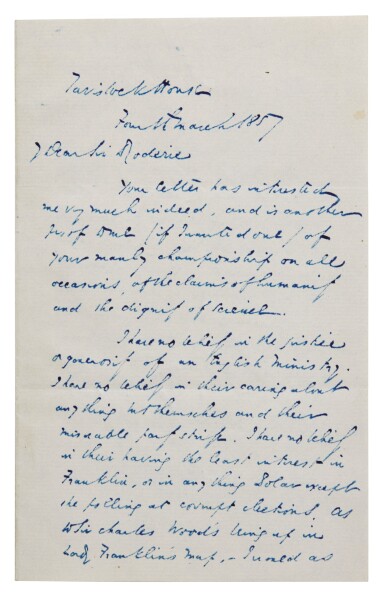 Tavistock House
Fourth March 1857
My Dear Sir Roderick
Your letter has interested
me very much indeed, and is another
proof to me (if I wanted one) of
your manly championship on all
occasions, of the claims of humanity
and the dignity of science.
I have no belief in the justice
or generosity of an English Ministry.
I have no belief in their caring about
any thing but themselves and their
miserable party strife. I have no belief
in their having the least interest in
Franklin, or in any thing Polar except
the polling at corrupt elections. As
to Sir Charles Wood's being up in
Lady Franklin's map, – I would as